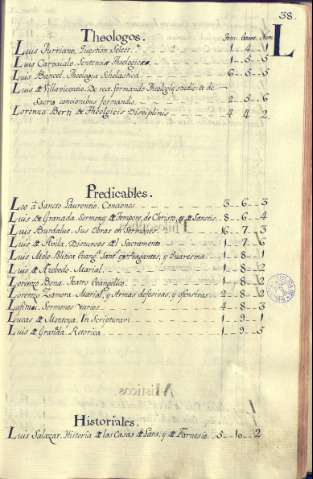 38.
Theologos.
Tom. Estant. Num.
L
Luis Turriano, Question Select.ᵃ 1 4 1
Luis Carvaialo Sententia Theologica 1 5 5
Luis Bancel, Theologia Scholastica 6 5 5
Luis de Villavicentio, De rect. formando Theologiæ studio et de
Sacra concionibus formandis 2 5 6
Lorenzo Berti de Theologicis Disciplinis 4 4 2
Predicables.
Leo à Sancto Laurentio, Conciones 3 6 3
Luis de Granada, Sermons de Tempore, de Christo, et de Sanctis 8 6 4
Luis Burdalue, Sus Obras en Sermones 16 7 3
Luis de Avila, Discursos del Sacramento 1 7 6
Luis Melo, Elitza Evang. y Quaresma 1 8 1
Luis de Azebedo Marial 1 8 2
Lorenzo Bona, Teatro Evangelico 1 8 2
Lorenzo Zamora, Marial, y Armas defensivas, y ofensivas 2 8 2
Lafitau, Sermones varios 4 8 3
Lucas de Montoya, In Scripturam 1 9 1
Luis de Granada, Retorica 1 9 5
Misticos
Historiales.
Luis Salazar, Historia de las Casas de Lara, y de Farnesio 5 10 2